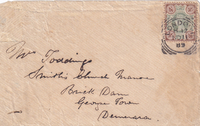 Mrs Toddings
Smiths Church Manse
Brick Dam
George Town
Demerara
89